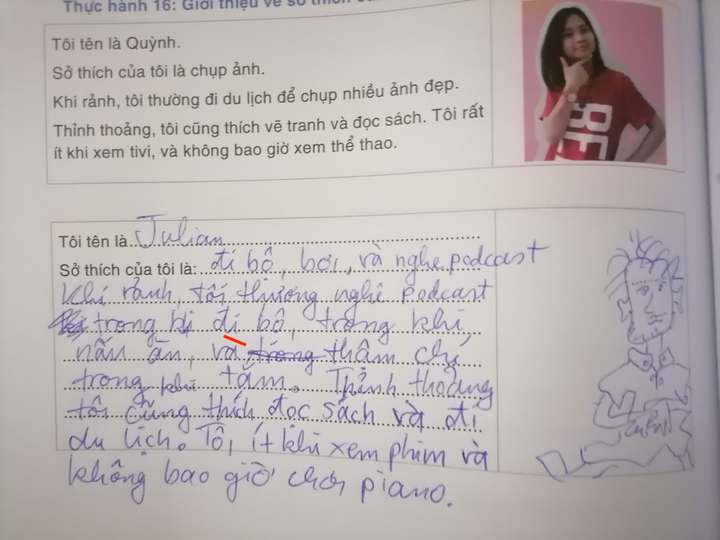 Thực hành 16: Giới thiệu về sở thích
Tôi tên là Quỳnh.
Sở thích của tôi là chụp ảnh.
Khi rảnh, tôi thường đi du lịch để chụp nhiều ảnh đẹp.
Thỉnh thoảng, tôi cũng thích vẽ tranh và đọc sách. Tôi rất
ít khi xem tivi, và không bao giờ xem thể thao.
Tôi tên là Julian
Sở thích của tôi là: đi bộ, bơi, và nghe podcast
Khi rảnh, tôi thường nghê podcast
trong kị đi bô, trong khi
nấu ăn, và thâm chí
trong khi tắm. Thỉnh thoảng
tôi cũng thích đọc sách và đi
du lịch. Tô, ít khi xem phim và
không bao giờ chơi piano.